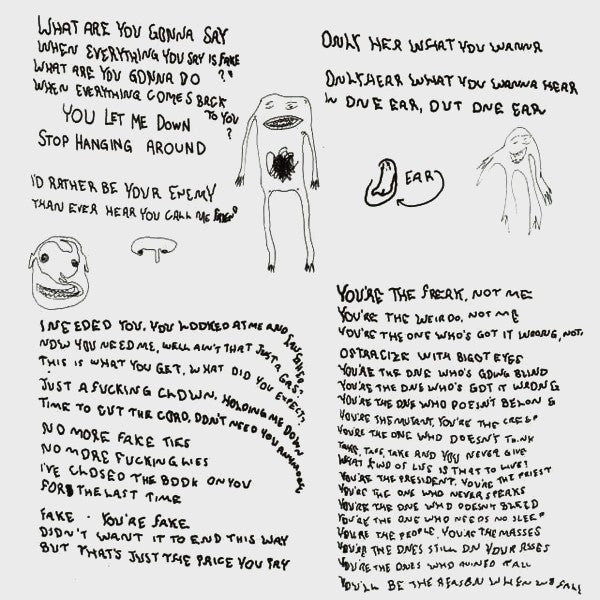 WHAT ARE YOU GONNA SAY
WHEN EVERYTHING YOU SAY IS FAKE
WHAT ARE YOU GONNA DO ?
WHEN EVERYTHING COMES BACK
TO YOU
?
YOU LET ME DOWN
STOP HANGING AROUND
I'D RATHER BE YOUR ENEMY
THAN EVER HEAR YOU CALL ME FRIEND
ONLY HER WHAT YOU WANNA
ONLY HEAR WHAT YOU WANNA HEAR
IN ONE EAR, OUT ONE EAR
EAR
I NEEDED YOU, YOU LOOKED AT ME AND LAUGHED
NOW YOU NEED ME, WELL AIN'T THAT JUST A GAS?
THIS IS WHAT YOU GET, WHAT DID YOU EXPECT,
JUST A FUCKING CLOWN, HOLDING ME DOWN
TIME TO CUT THE CORD, DON'T NEED YOU ANYMORE
NO MORE FAKE TIES
NO MORE FUCKING LIES
I'VE CLOSED THE BOOK ON YOU
FOR THE LAST TIME
FAKE - YOU'RE FAKE
DIDN'T WANT IT TO END THIS WAY
BUT THAT'S JUST THE PRICE YOU PAY
YOU'RE THE FREAK, NOT ME
YOU'RE THE WEIRDO, NOT ME
YOU'RE THE ONE WHO'S GOT IT WRONG, NOT.
OSTRACIZE WITH BIGOT EYES
YOU'RE THE ONE WHO'S GOING BLIND
YOU'RE THE ONE WHO'S GOT IT WRONG
YOU'RE THE ONE WHO DOESN'T BELONG
YOU'RE THE MUTANT, YOU'RE THE CREEP
YOU'RE THE ONE WHO DOESN'T THINK
TAKE, TAKE, TAKE AND YOU NEVER GIVE
WHAT KIND OF LIFE IS THAT TO LIVE?
YOU'RE THE PRESIDENT, YOU'RE THE PRIEST
YOU'RE THE ONE WHO NEVER SPEAKS
YOU'RE THE ONE WHO DOESN'T BLEED
YOU'RE THE ONE WHO NEEDS NO SLEEP
YOU'RE THE PEOPLE, YOU'RE THE MASSES
YOU'RE THE ONES STILL ON YOUR ASSES
YOU'RE THE ONES WHO RUINED IT ALL
YOU'LL BE THE REASON WHEN WE FALL